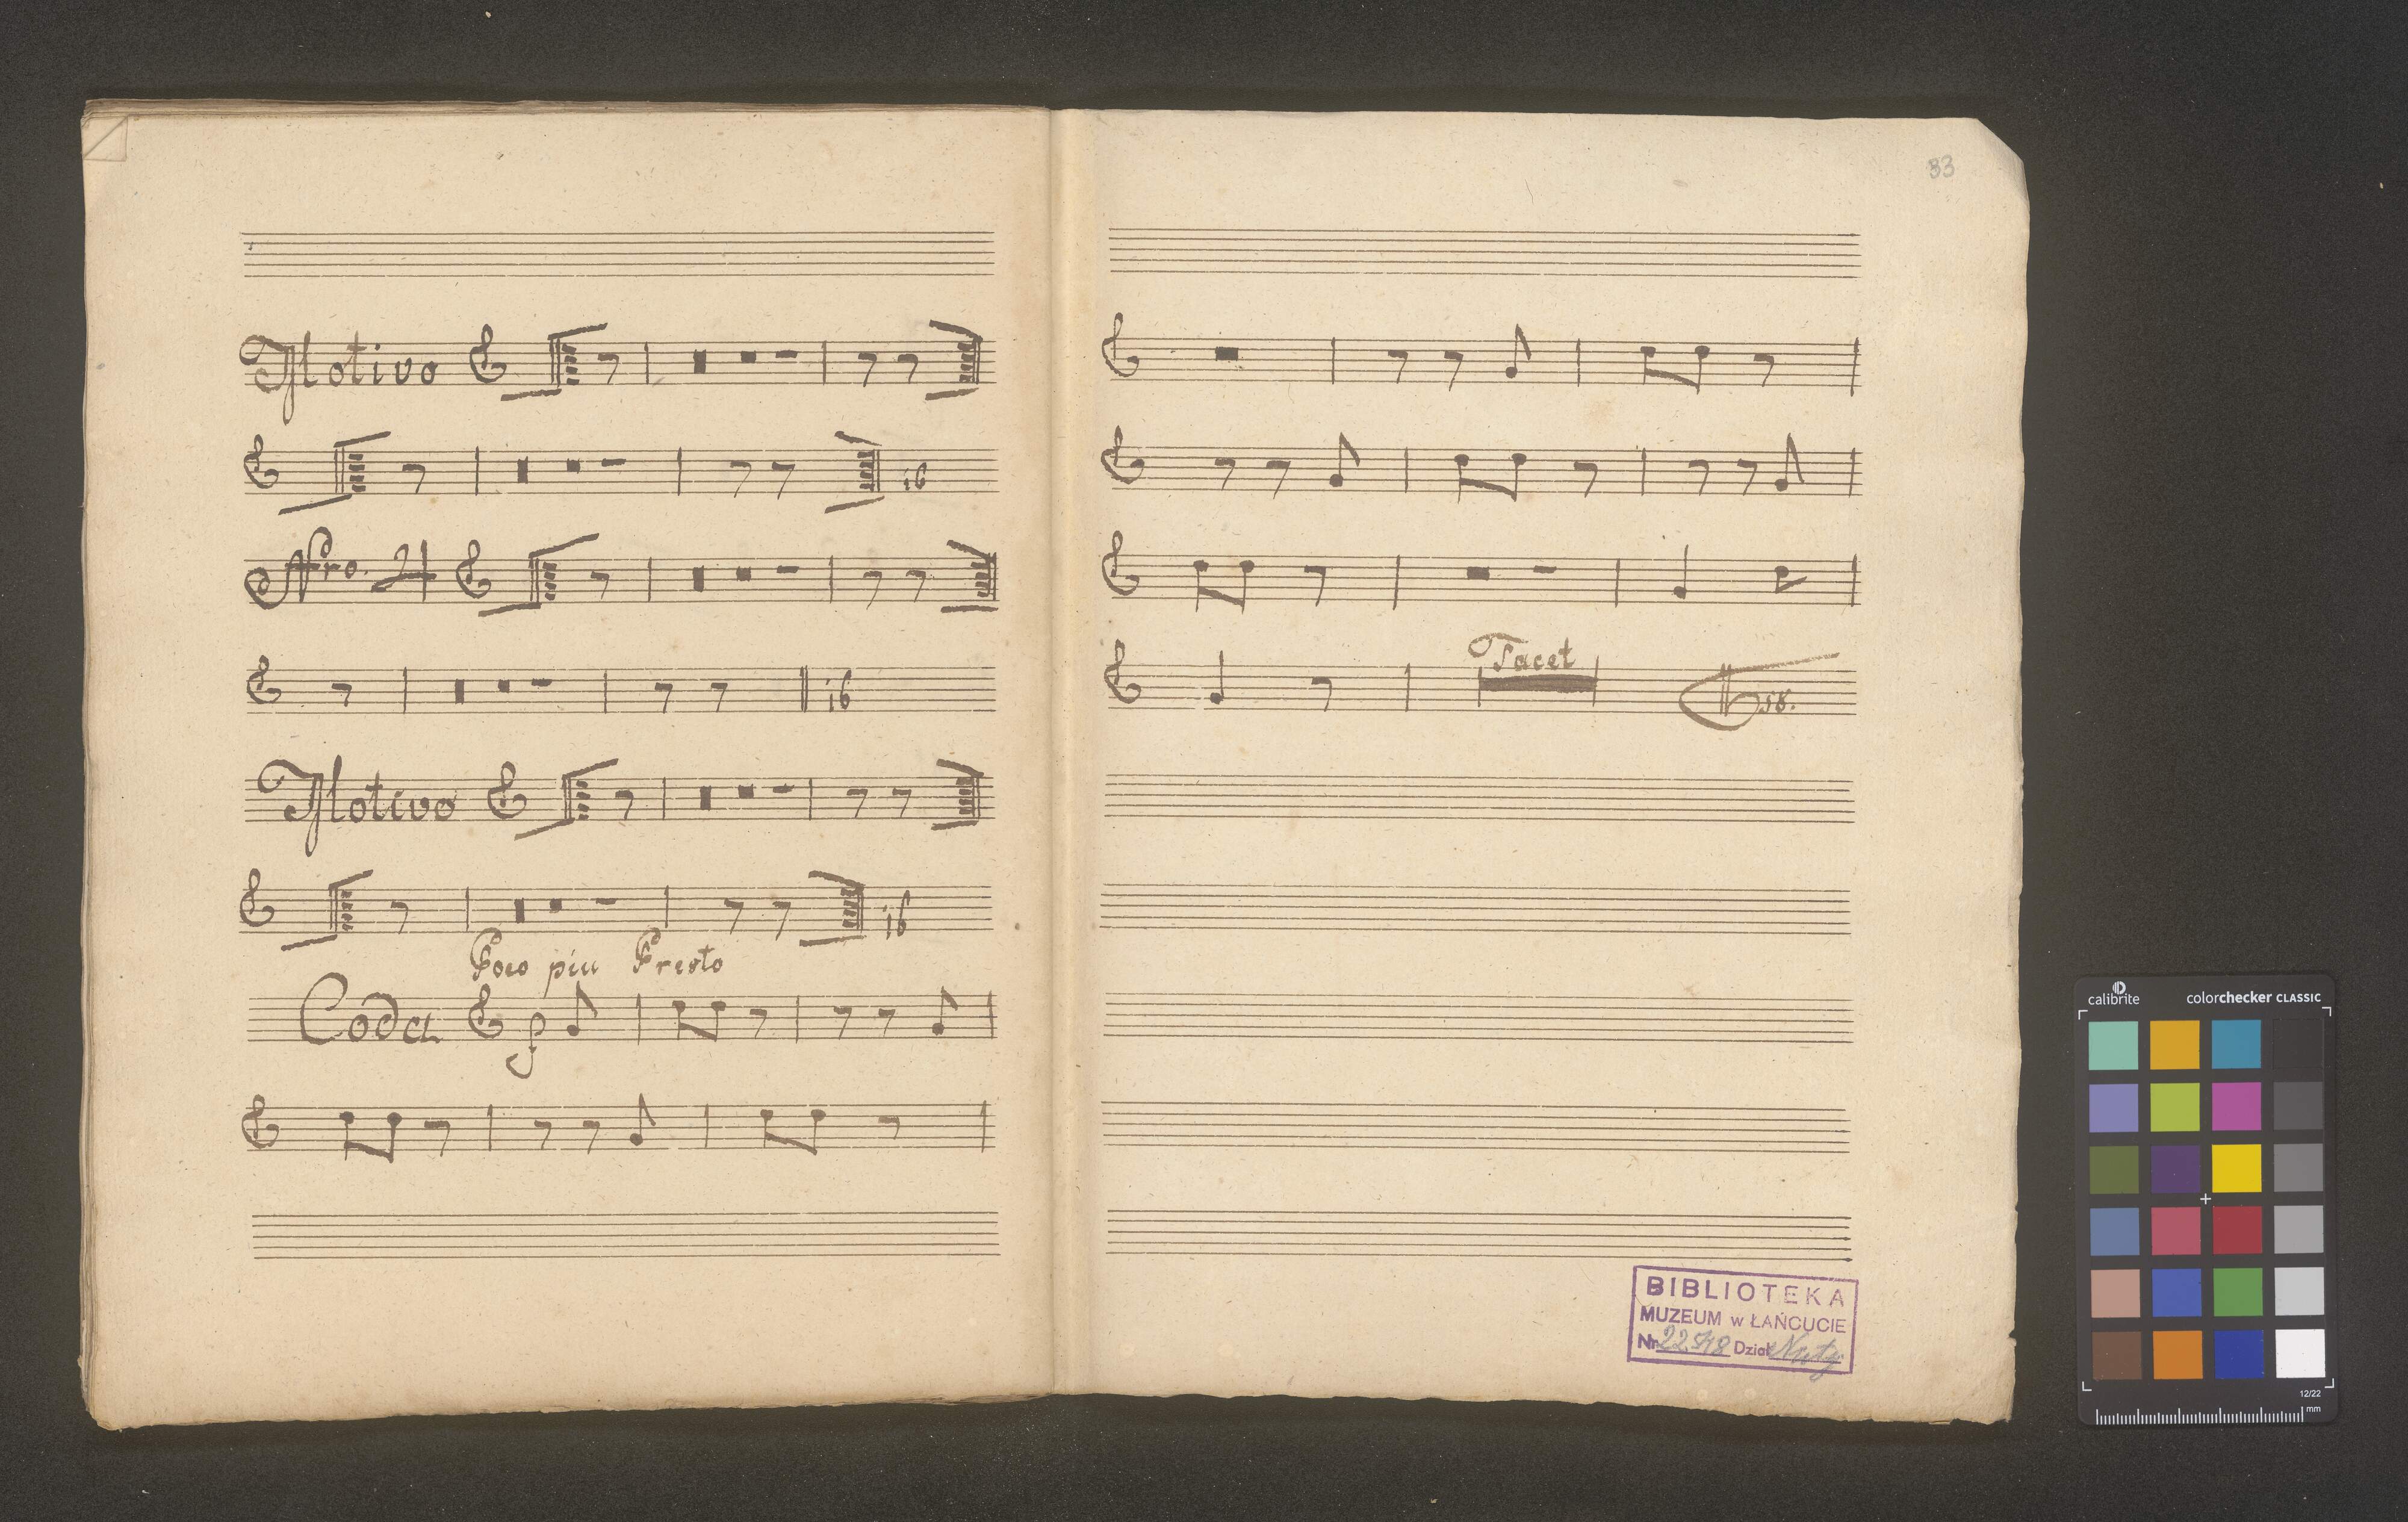 Motivo
:16
Nro. 2
:16
Motivo
:16
Poco piu Presto
Coda f
33
Tacet
BIBLIOTEKA
MUZEUM w ŁAŃCUCIE
Nr 22548 Dział Nuty
calibrite colorchecker CLASSIC
12/22
mm